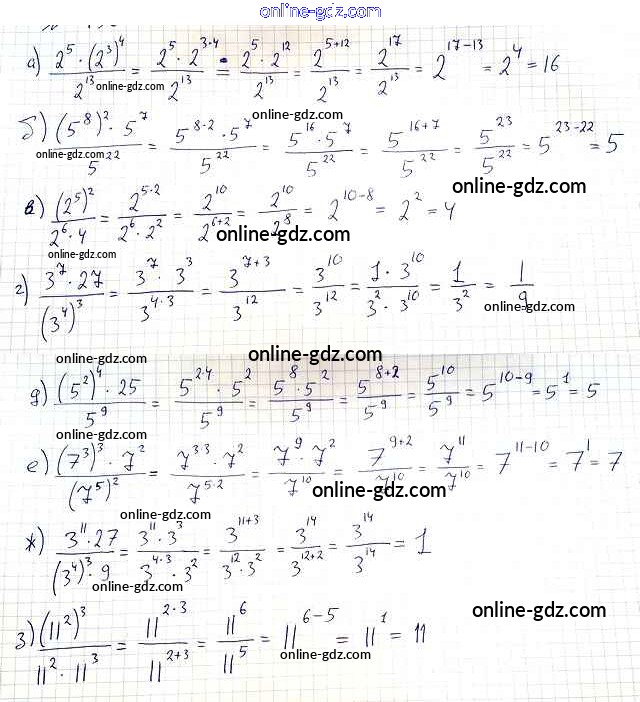 online-gdz.com
а) (2^5 · (2^3)^4)/2^13 = (2^5 · 2^(3·4))/2^13 = (2^5 · 2^12)/2^13 = 2^(5+12)/2^13 = 2^17/2^13 = 2^(17-13) = 2^4 = 16
online-gdz.com
online-gdz.com
б) ((5^8)^2 · 5^7)/5^22 = (5^(8·2) · 5^7)/5^22 = (5^16 · 5^7)/5^22 = 5^(16+7)/5^22 = 5^23/5^22 = 5^(23-22) = 5
online-gdz.com
online-gdz.com
в) (2^5)^2/(2^6 · 4) = 2^(5·2)/(2^6 · 2^2) = 2^10/2^(6+2) = 2^10/2^8 = 2^(10-8) = 2^2 = 4
online-gdz.com
online-gdz.com
г) (3^7 · 27)/(3^4)^3 = (3^7 · 3^3)/3^(4·3) = 3^(7+3)/3^12 = 3^10/3^12 = (1 · 3^10)/(3^2 · 3^10) = 1/3^2 = 1/9
online-gdz.com
online-gdz.com
online-gdz.com
д) ((5^2)^4 · 25)/5^9 = (5^(2·4) · 5^2)/5^9 = (5^8 · 5^2)/5^9 = 5^(8+2)/5^9 = 5^10/5^9 = 5^(10-9) = 5^1 = 5
online-gdz.com
е) ((7^3)^3 · 7^2)/(7^5)^2 = (7^(3·3) · 7^2)/7^(5·2) = (7^9 · 7^2)/7^10 = 7^(9+2)/7^10 = 7^11/7^10 = 7^(11-10) = 7^1 = 7
online-gdz.com
online-gdz.com
ж) (3^11 · 27)/((3^4)^3 · 9) = (3^11 · 3^3)/(3^(4·3) · 3^2) = 3^(11+3)/(3^12 · 3^2) = 3^14/3^(12+2) = 3^14/3^14 = 1
online-gdz.com
online-gdz.com
з) (11^2)^3/(11^2 · 11^3) = 11^(2·3)/11^(2+3) = 11^6/11^5 = 11^(6-5) = 11^1 = 11
online-gdz.com